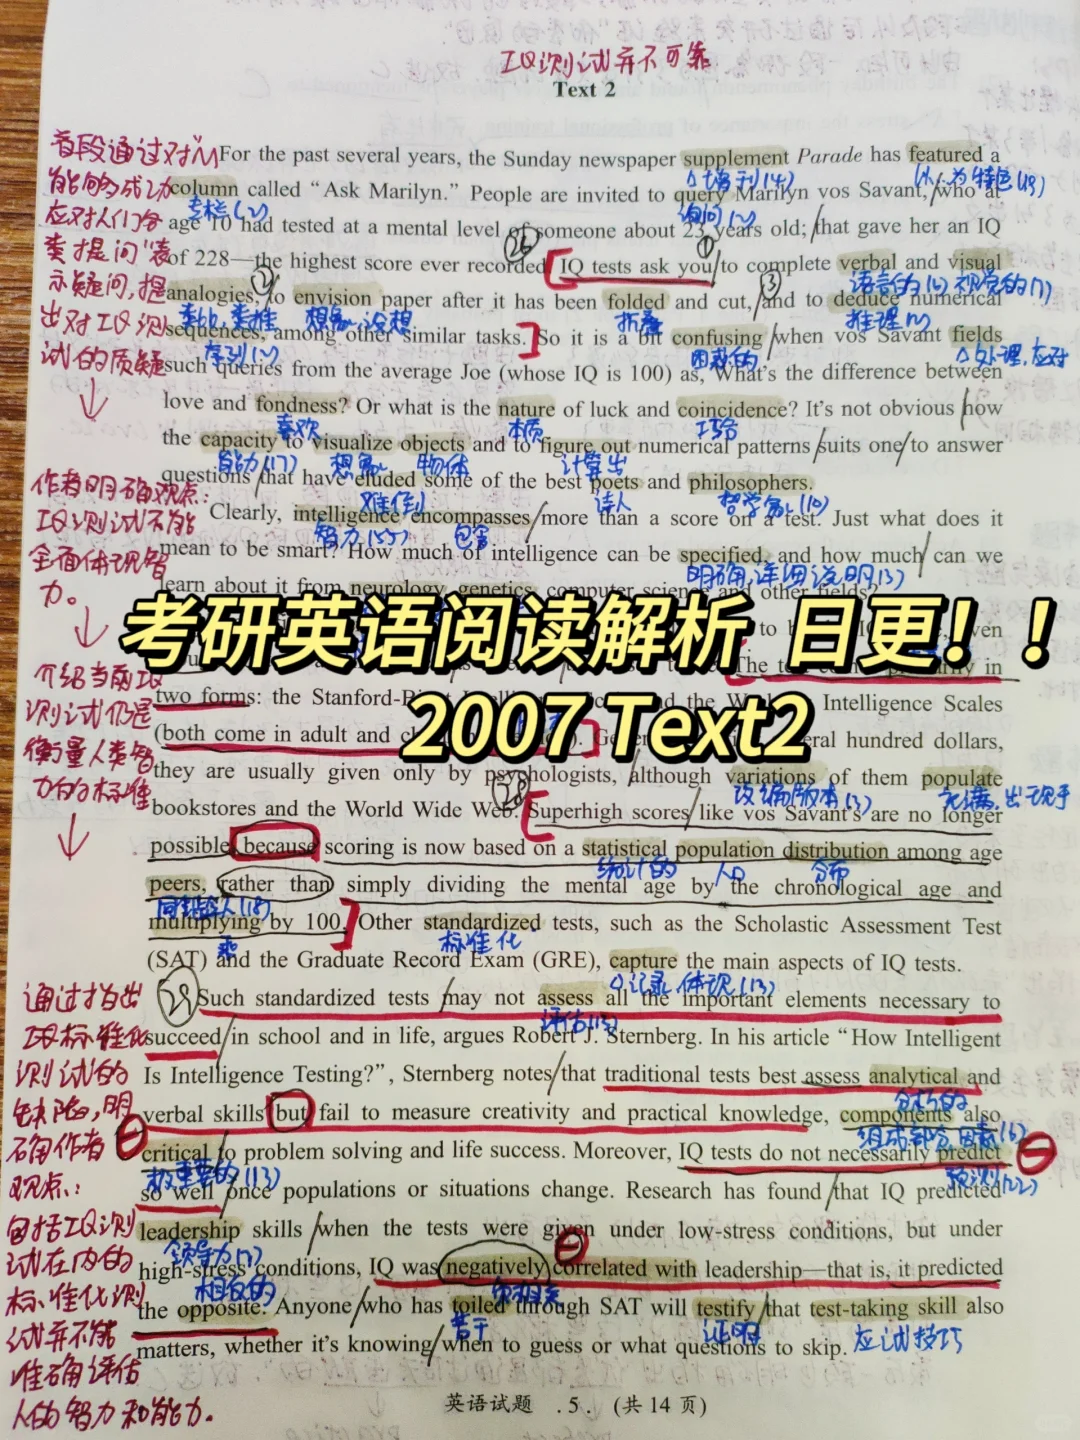 IQ测试并不可靠
Text 2
For the past several years, the Sunday newspaper supplement Parade has featured a
column called “Ask Marilyn.” People are invited to query Marilyn vos Savant, who at
age 10 had tested at a mental level of someone about 23 years old; that gave her an IQ
of 228—the highest score ever recorded. IQ tests ask you to complete verbal and visual
analogies, to envision paper after it has been folded and cut, and to deduce numerical
sequences, among other similar tasks. So it is a bit confusing when vos Savant fields
such queries from the average Joe (whose IQ is 100) as, What’s the difference between
love and fondness? Or what is the nature of luck and coincidence? It’s not obvious how
the capacity to visualize objects and to figure out numerical patterns suits one to answer
questions that have eluded some of the best poets and philosophers.
Clearly, intelligence encompasses more than a score on a test. Just what does it
mean to be smart? How much of intelligence can be specified, and how much can we
learn about it from neurology, genetics, computer science and other fields?
考研英语阅读解析 日更！！
to b
in
two forms: the Stanford-B
and the W
Intelligence Scales
2007 Text2
(both come in adult and c
eral hundred dollars,
they are usually given only by psychologists, although variations of them populate
bookstores and the World Wide Web. Superhigh scores like vos Savant’s are no longer
possible, because scoring is now based on a statistical population distribution among age
peers, rather than simply dividing the mental age by the chronological age and
multiplying by 100. Other standardized tests, such as the Scholastic Assessment Test
(SAT) and the Graduate Record Exam (GRE), capture the main aspects of IQ tests.
Such standardized tests may not assess all the important elements necessary to
succeed in school and in life, argues Robert J. Sternberg. In his article “How Intelligent
Is Intelligence Testing?”, Sternberg notes that traditional tests best assess analytical and
verbal skills but fail to measure creativity and practical knowledge, components also
critical to problem solving and life success. Moreover, IQ tests do not necessarily predict
so well once populations or situations change. Research has found that IQ predicted
leadership skills when the tests were given under low-stress conditions, but under
high-stress conditions, IQ was negatively correlated with leadership—that is, it predicted
the opposite. Anyone who has toiled through SAT will testify that test-taking skill also
matters, whether it’s knowing when to guess or what questions to skip.
英语试题 . 5 . (共 14 页)
首段通过对“IQ
能够成功
应对人们各
类提问”表
示疑问,提
出对IQ测
试的质疑
作者明确观点:
IQ测试不能
全面体现智
力。
介绍当前IQ
测试仍是
衡量人类智
力的标准
通过指出
IQ标准化
测试的
缺陷,明
确作者
观点:
包括IQ测
试在内的
标准化测
试并不能
准确评估
人的智力和能力.
增刊(14)
以…为特色(19)
专栏(2)
询问(1)
26
语言的(6) 视觉的(1)
类比,类推
想象,设想
折叠
推理(1)
序列(1)
困惑的
处理,应对
喜欢
本质
巧合
能力(17)
想象
物体
计算出
难倒
诗人
哲学家(10)
智力(55)
包含
明确,详细说明(3)
28
改编版本(3)
充满,出现于
统计的
人口
分布
同龄人(18)
乘
标准化
记录,体现(13)
29
评估(13)
分析的
组成部分,因素(6)
极重要的(13)
预测(22)
领导力(7)
相反的
负相关
苦干
证明
应试技巧